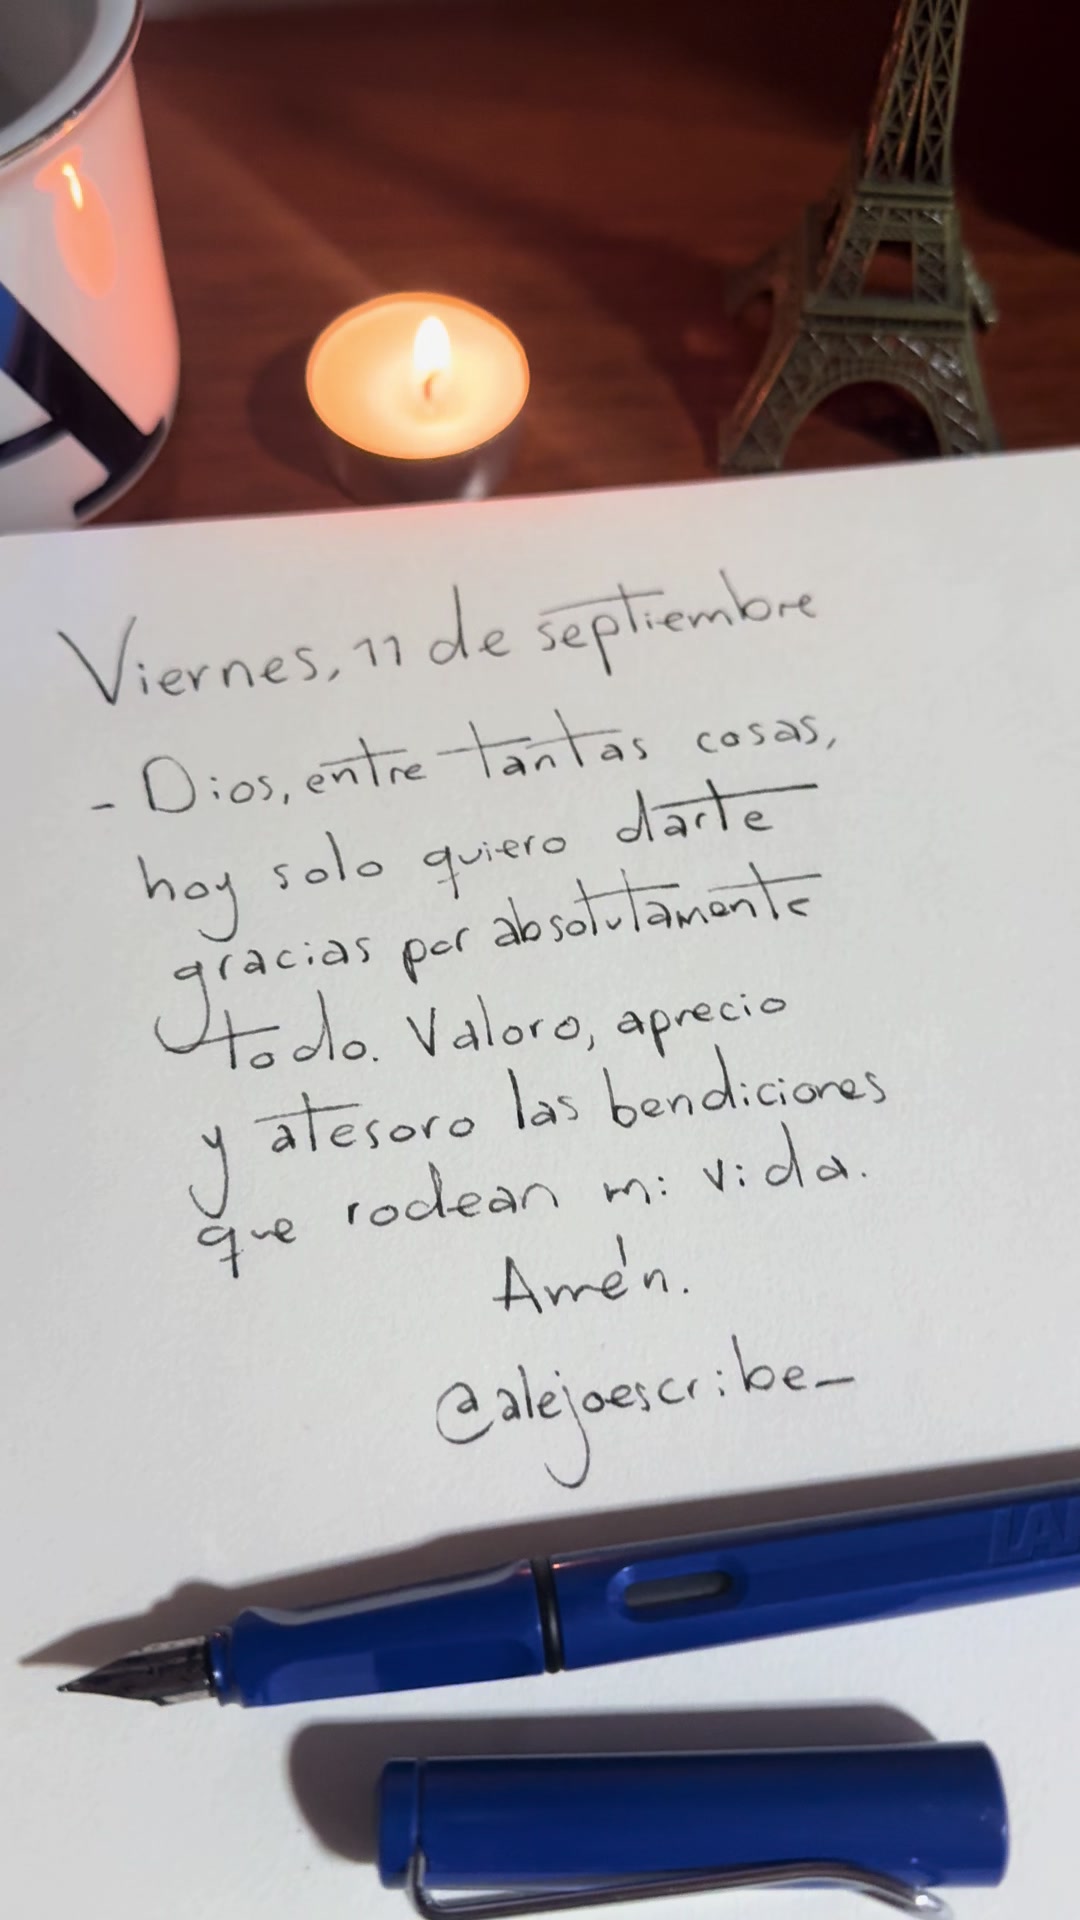 Viernes, 11 de septiembre
- Dios, entre tantas cosas,
hoy solo quiero darte
gracias por absolutamente
todo. Valoro, aprecio
y atesoro las bendiciones
que rodean mi vida.
Amén.
@alejoescribe_